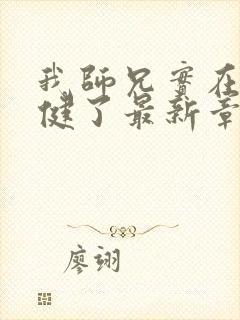 我師兄實在
健了最新章
廖翊